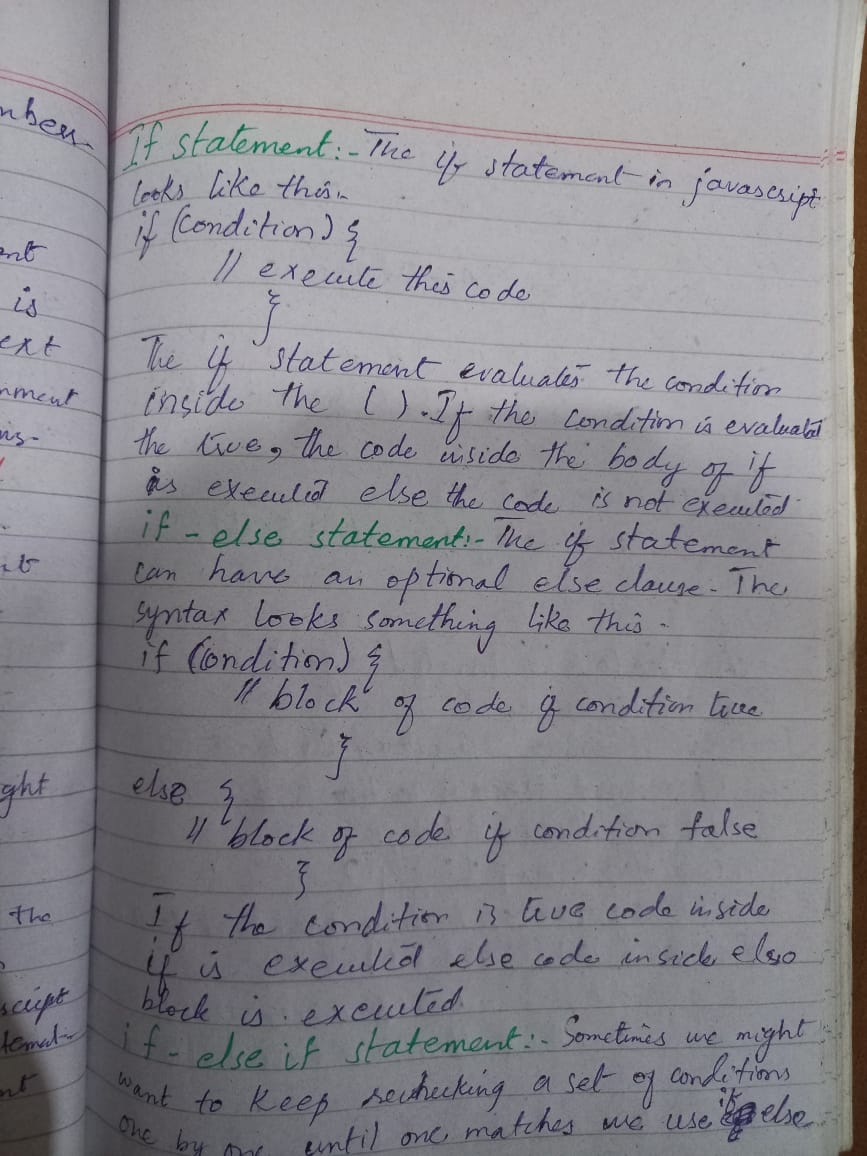 nber
ent
is
ext
nment
ght
The
script
temat-
nt
If statement:- The if statement in javascript
looks like this.
if (Condition) {
// execute this code
}
The if statement evaluates the condition
inside the ( ). If the condition is evaluated
the true, the code inside the body of if
is executed else the code is not executed
if - else statement:- The if statement
can have an optional else clause. The
syntax looks something like this -
if (Condition) {
// block of code if condition true
}
else {
// block of code if condition false
}
If the condition is true code inside
if is executed else code inside else
block is executed
if - else if statement:- Sometimes we might
want to keep rechecking a set of conditions
one by one until one matches we use if else